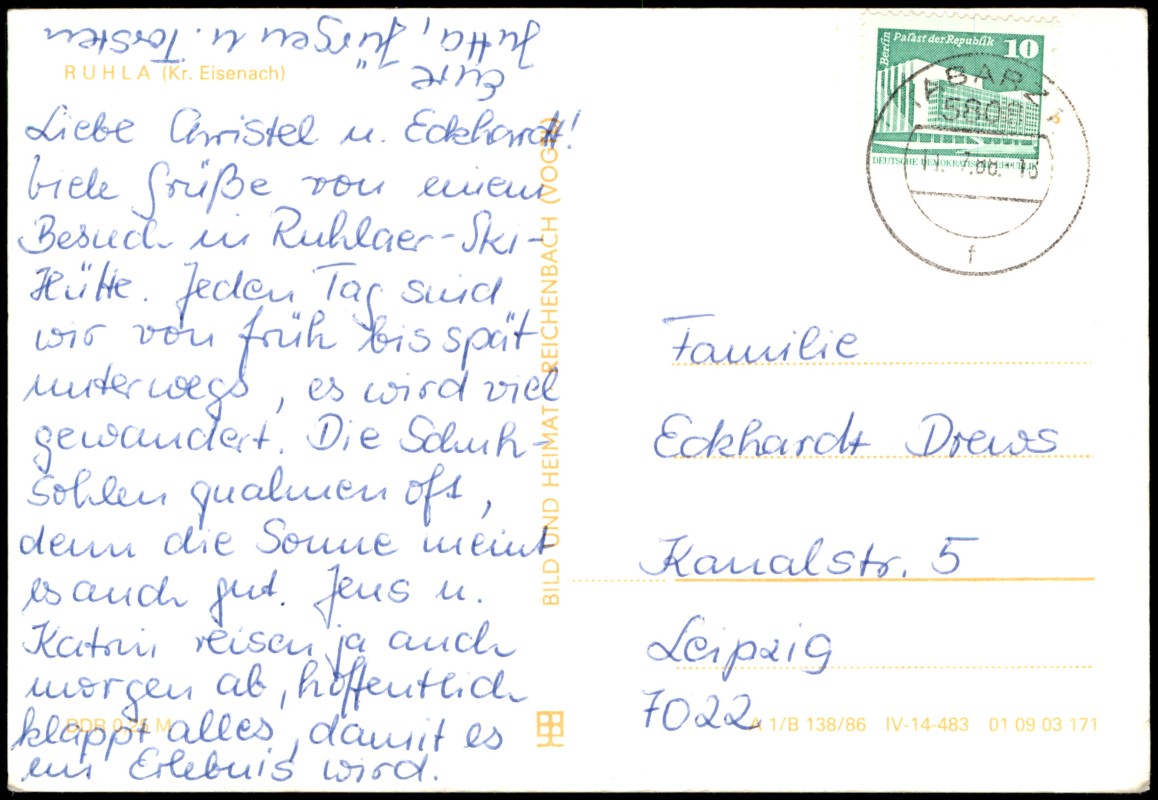 RUHLA (Kr. Eisenach)
Liebe Christel u. Eckhardt!
viele Grüße von einem
Besuch in Ruhlaer-Ski-
Hütte. Jeden Tag sind
wir von früh bis spät
unterwegs, es wird viel
gewandert. Die Schuh-
sohlen qualmen oft,
denn die Sonne meint
es auch gut. Jens u.
Katrin reisen ja auch
morgen ab, hoffentlich
klappt alles, damit es
ein Erlebnis wird.
Eure
Jutta, Jürgen u. Torsten
DDR 0,25 M
BILD UND HEIMAT REICHENBACH (VOGTL)
Berlin
Palast der Republik
10
DEUTSCHE DEMOKRATISCHE REPUBLIK
TABARZ
580
f
Familie
Eckhardt Drews
Kanalstr. 5
Leipzig
7022
A 1/B 138/86 IV-14-483 01 09 03 171